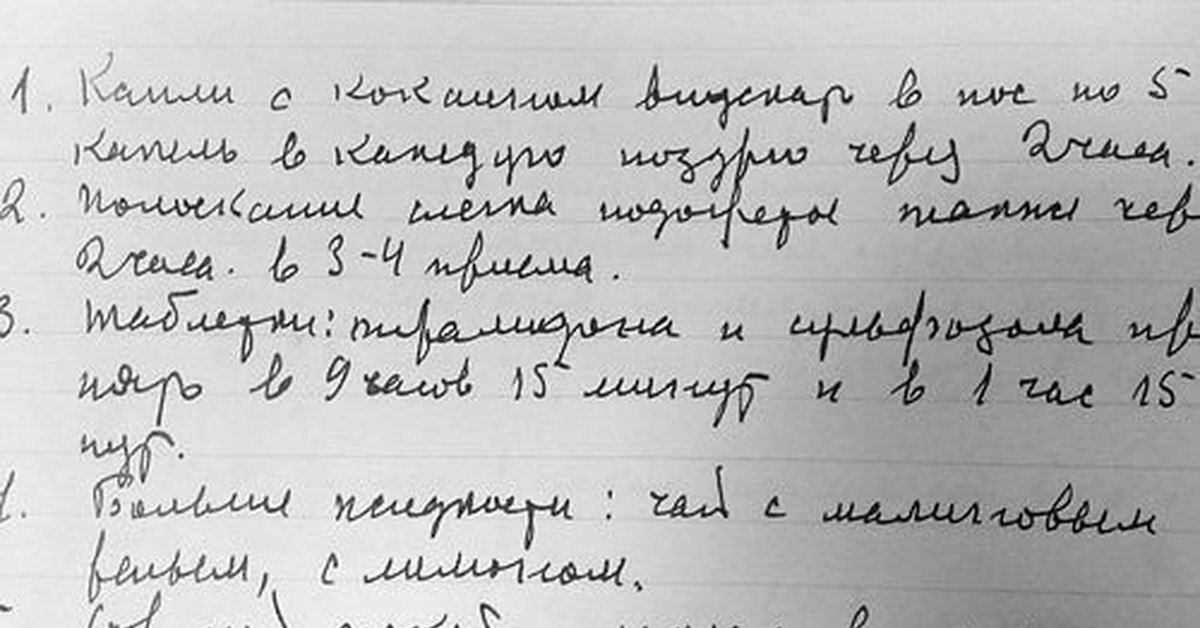 1. Капли с кокаином вид скар в нос по 5
капель в каждую ноздрю через 2 часа.
2. Полоскание слегка подогреты
2 часа. в 3-4 приема.
3. Таблетки: пирамидона и сульфозола
в 9 часов 15 минут и в 1 час 15
нут.
Больше жидкости: чай с малиновым
реньем, с лимоном.